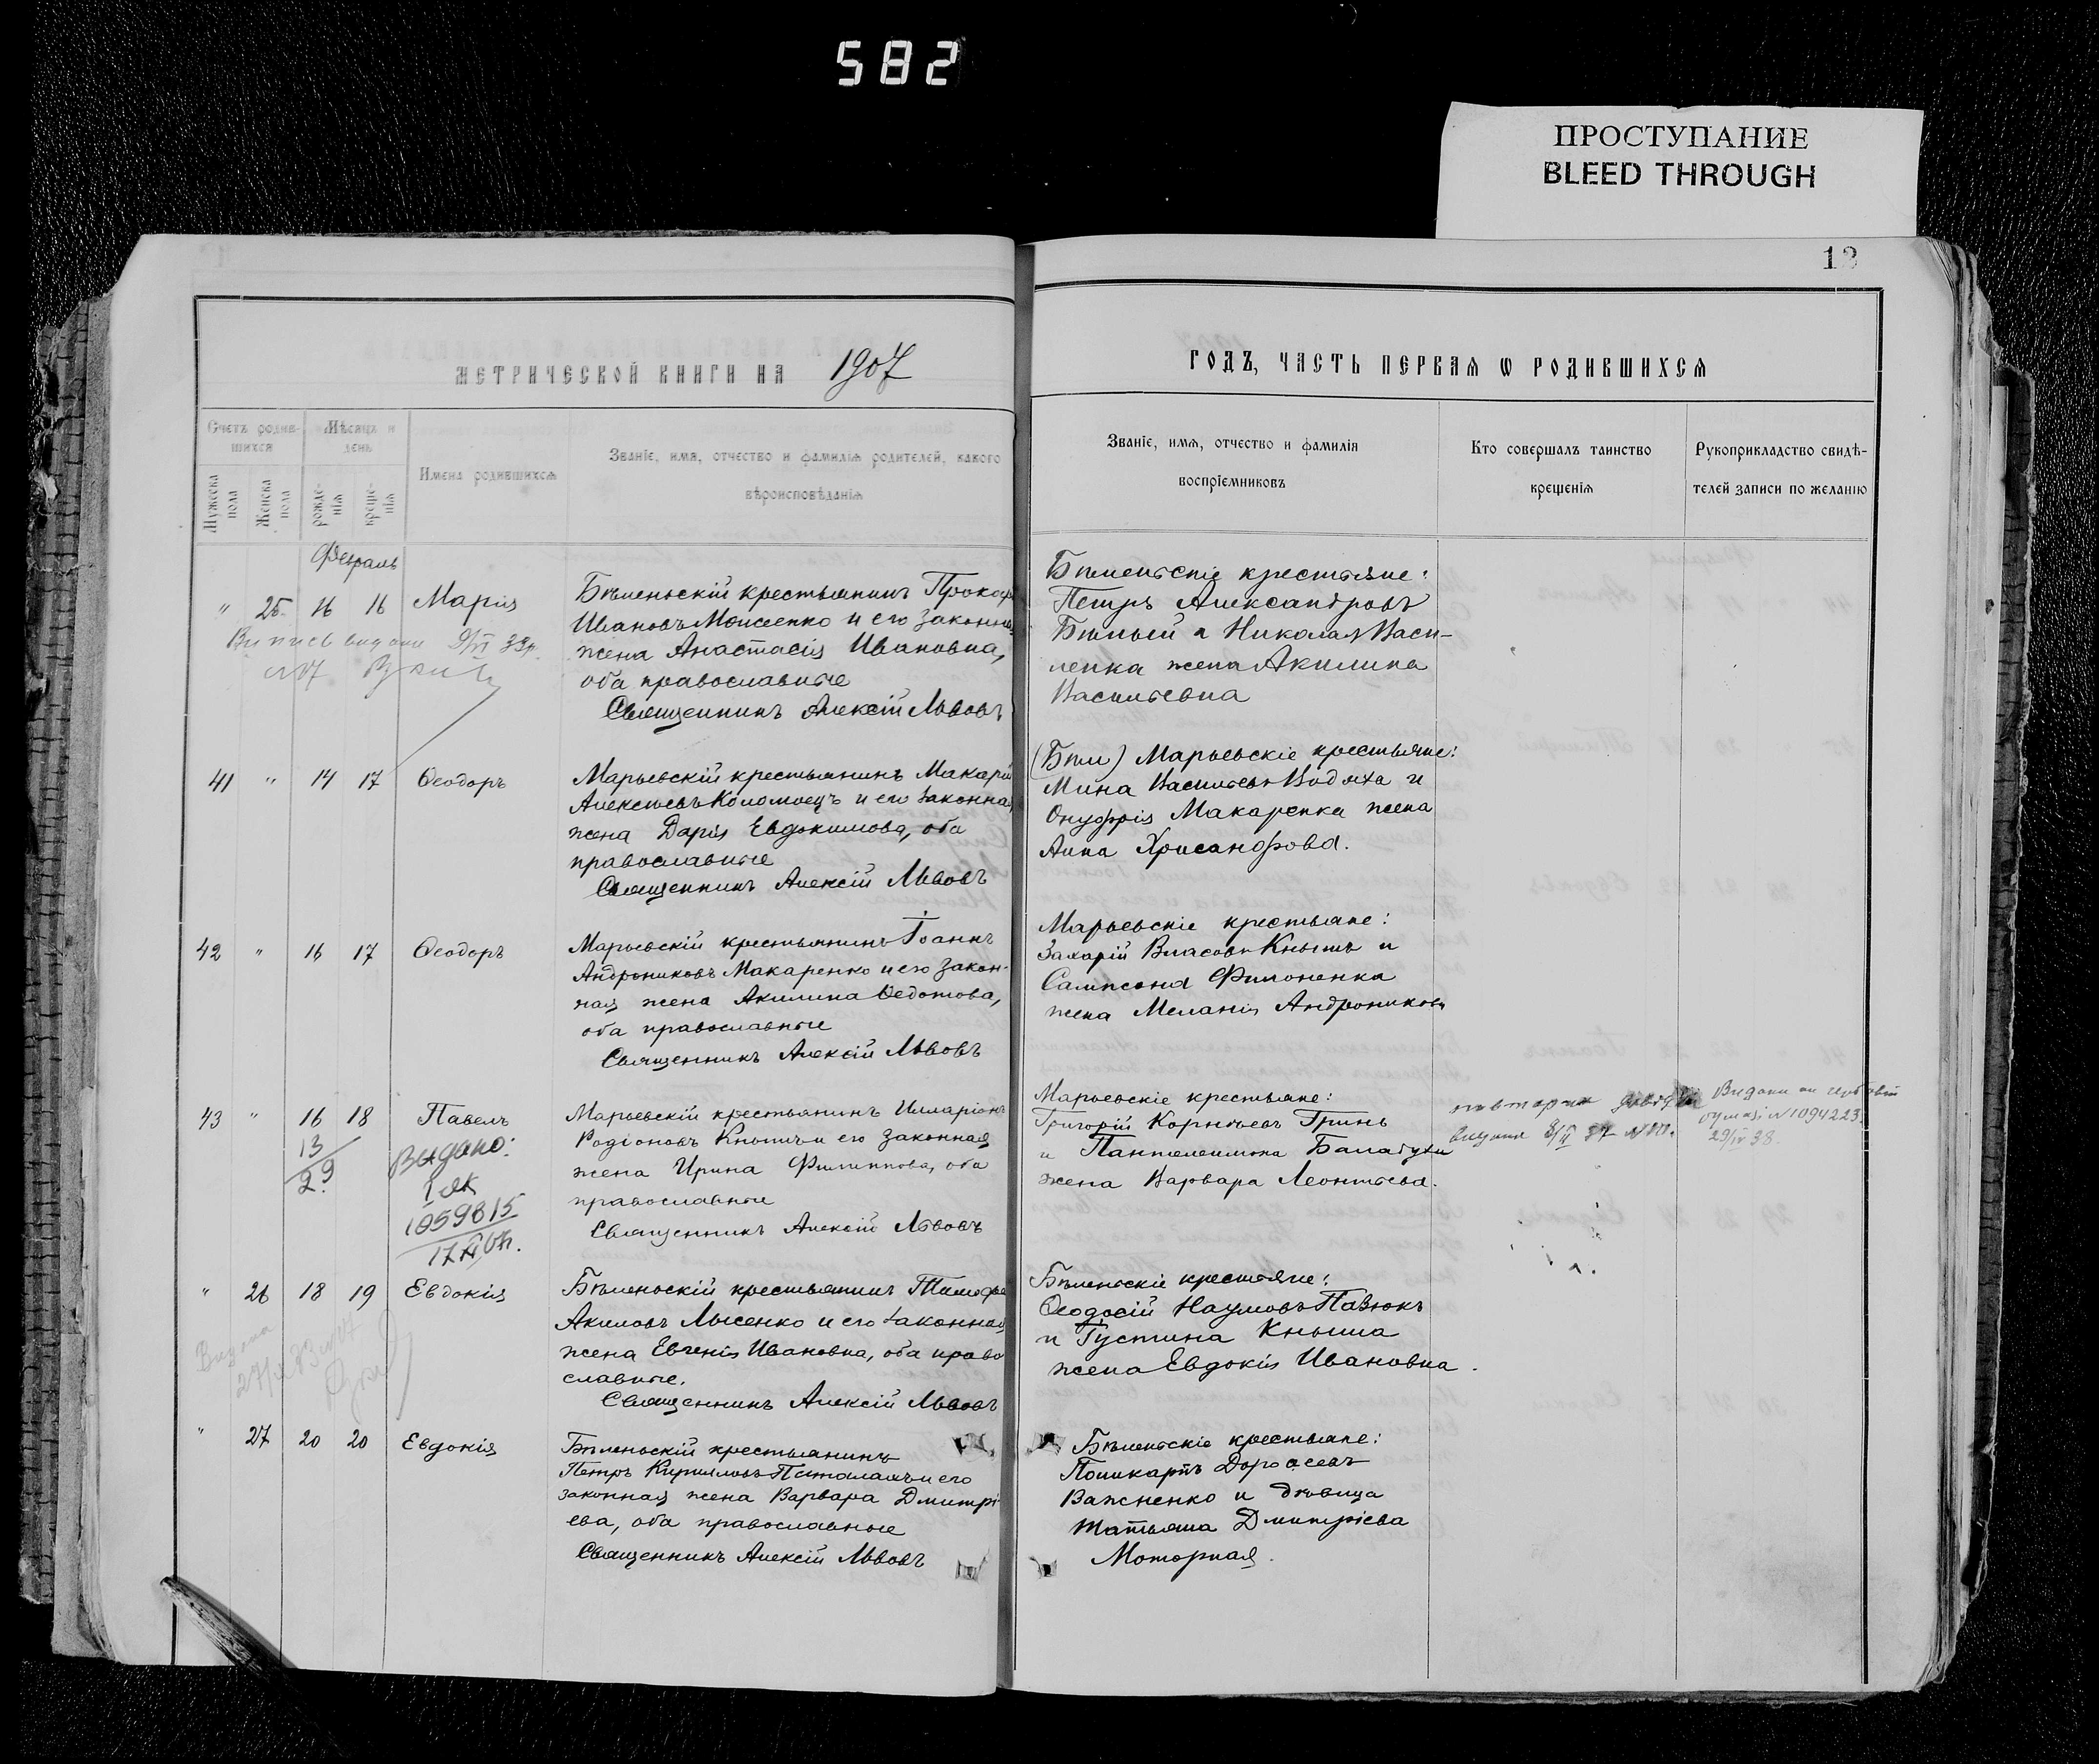 582
ПРОСТУПАНИЕ
BLEED THROUGH
13
МЕТРИЧЕСКОЙ КНИГИ НА 1907
ГОДЪ, ЧАСТЬ ПЕРВАЯ Ѡ РОДИВШИХСЯ
Счетъ родив-
шихся
Мѣсяцъ и
день
Мужеска
пола
Женска
пола
рожде-
нія
креще-
нія
Имена родившихся
Званіе, имя, отчество и фамилія родителей, какого
вѣроисповѣданія
Званіе, имя, отчество и фамилія
воспріемниковъ
Кто совершалъ таинство
крещенія
Рукоприкладство свидѣ-
телей записи по желанію
Февраль
" 25 16 16 Марія
Бѣленьскій крестьянинъ Прокоф
Ивановъ Моисеенко и его законная
жена Анастасія Ивановна,
оба православные
Священникъ Алексій Львовъ
Бѣленьскіе крестьяне:
Петръ Александровъ
Бѣлый и Николая Васи-
ленка жена Акилина
Васильевна
41 " 14 17 Ѳеодоръ
Марьевскій крестьянинъ Макарій
Алексѣевъ Коломоецъ и его законная
жена Дарія Евдокимова, оба
православные
Священникъ Алексій Львовъ
(Бѣл) Марьевскіе крестьяне:
Мина Васильевъ Водяха и
Онуфрія Макаренка жена
Анна Хрисанфова.
42 " 16 17 Ѳеодоръ
Марьевскій крестьянинъ Іоаннъ
Андрониковъ Макаренко и его закон-
ная жена Акилина Ѳедотова,
оба православные
Священникъ Алексій Львовъ
Марьевскіе крестьяне:
Захарій Власовъ Кнышъ и
Сампсона Филоненка
жена Меланія Андроникова
43 " 16 18 Павелъ
13
29
Видано:
1059815
Марьевскій крестьянинъ Иларіонъ
Родіоновъ Кнышъ и его законная
жена Ирина Филиппова, оба
православные
Священникъ Алексій Львовъ
Марьевскіе крестьяне:
Григорій Корнѣевъ Гринь
и Пантелеимона Балабухи
жена Варвара Леонтьева.
Видано
№ 1094223
29/IV 38.
" 26 18 19 Евдокія
Бѣленьскій крестьянинъ Тимофей
Акимовъ Лысенко и его законная
жена Евгенія Ивановна, оба право
славные.
Священникъ Алексій Львовъ
Бѣленьскіе крестьяне:
Ѳеодосій Наумовъ Павлюкъ
и Густина Кныша
жена Евдокія Ивановна.
" 27 20 20 Евдокія
Бѣленьскій крестьянинъ
Петръ Кирилловъ Паталахъ и его
законная жена Варвара Дмитрі
ева, оба православные
Священникъ Алексій Львовъ
Бѣленьскіе крестьяне:
Поликарпъ Дороѳеевъ
Важненко и дѣвица
Татьяна Дмитріева
Моторная.